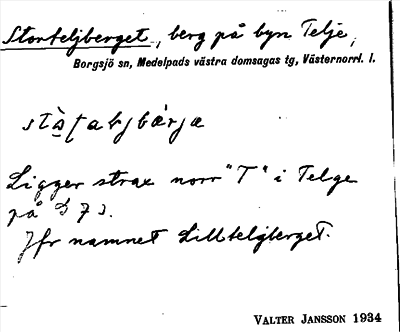 Storteljberget, berg på byn Telje,
Borgsjö sn, Medelpads västra domsagas tg, Västernorrl. l.
Ligger strax norr "T" i Telge
på D 7 3.
Jfr namnet Lillteljberget.
VALTER JANSSON 1934